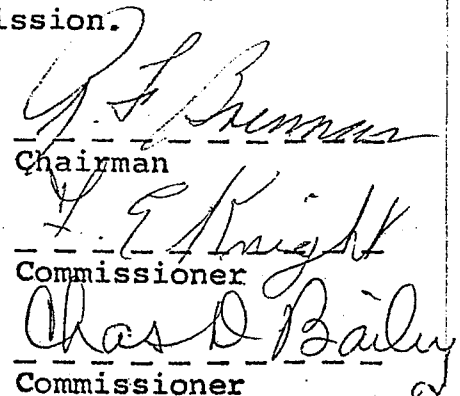 ission.
F Brennan
Chairman
E Knight
Commissioner
Chas D Bailey
Commissioner